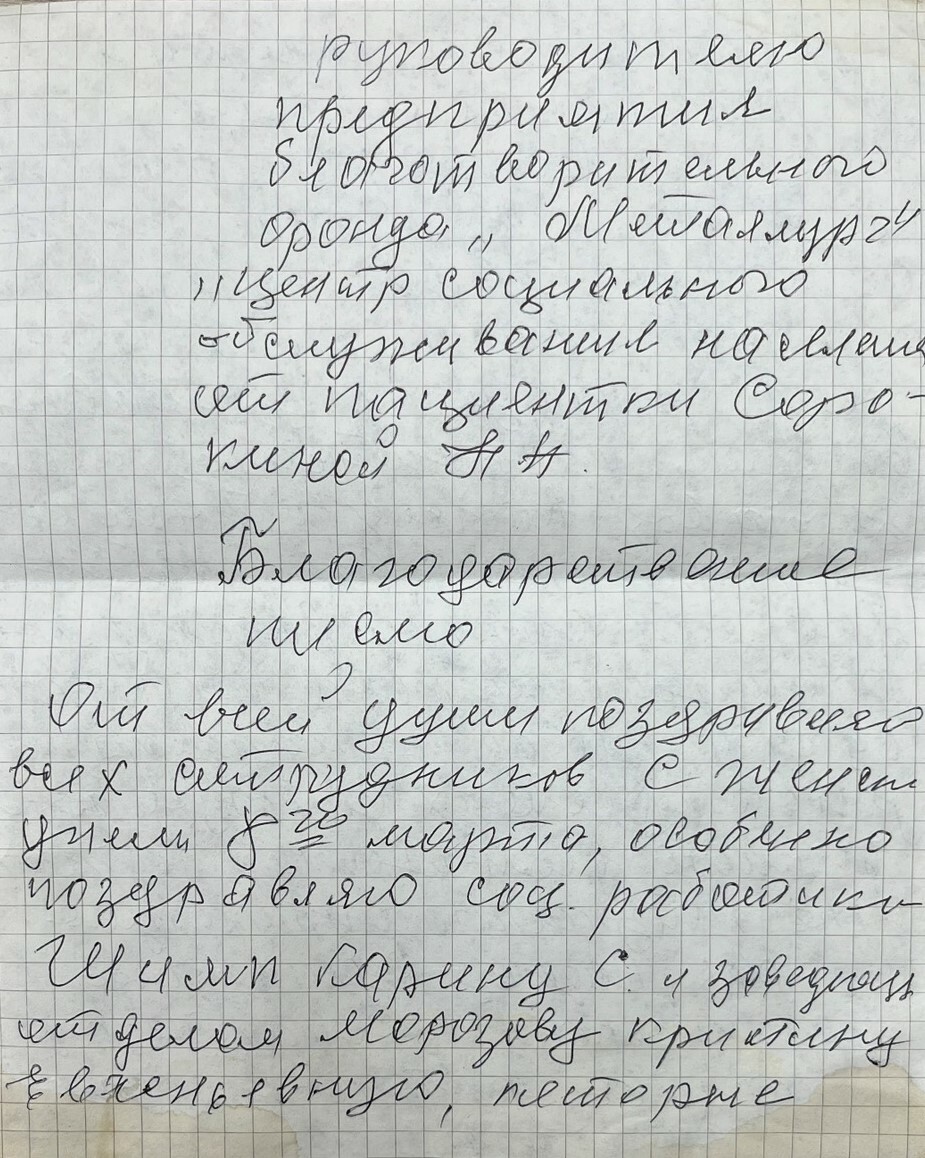 руководителю
предприятия
благотворительного
фонда „Металлург"
„Центр социального
обслуживания населения
от пациентки Соро-
киной Н Н.
Благодарственное
письмо
От всей души поздравляю
всех сотрудников с женским
днем 8го марта, особенно
поздравляю соц. работника
Карину С. и заведующую
отделом Морозову Кристину
Евгеньевную, которые